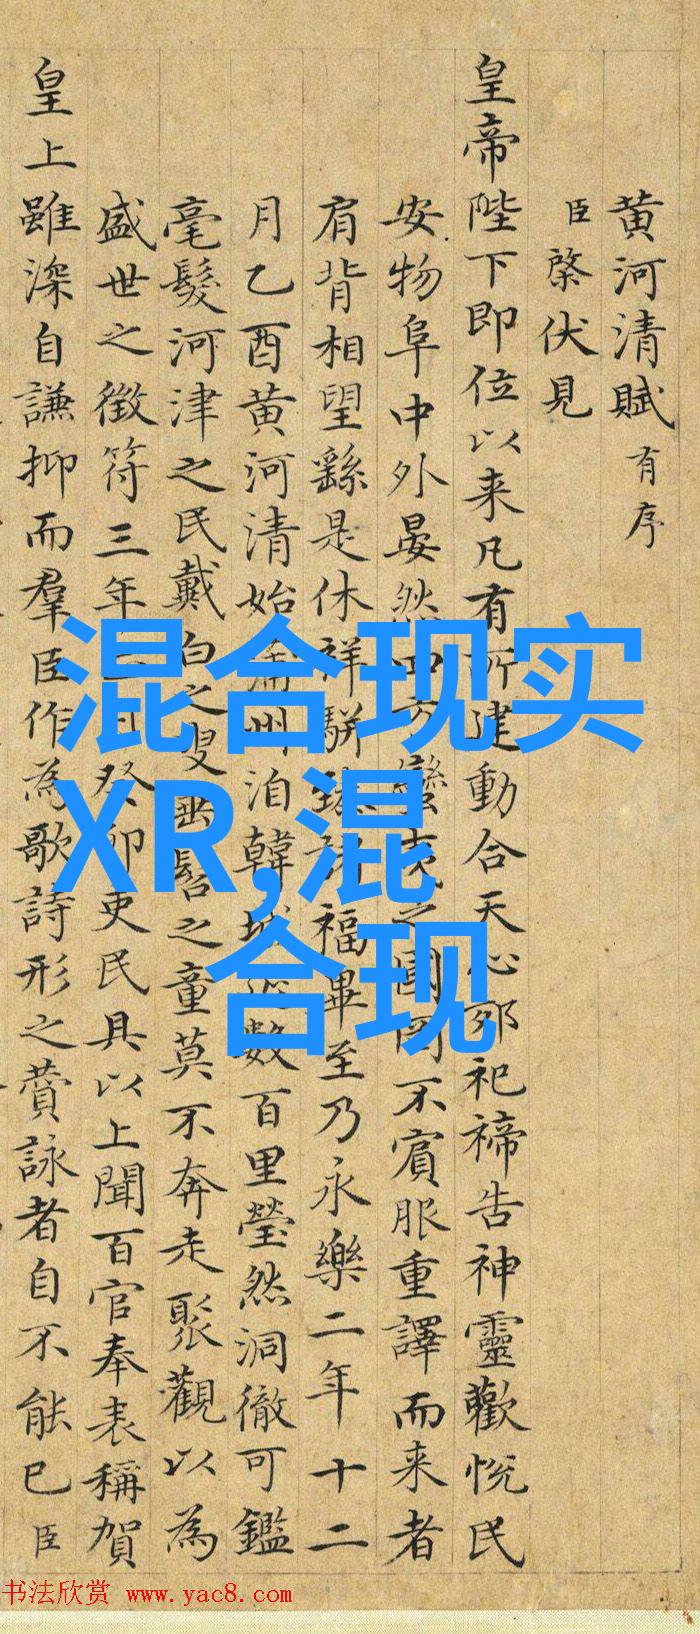 黄河清賦有序
臣棨伏見
皇帝陛下即位以来凡有所建動合天心郊祀禘告神靈歡悅民
安物阜中外晏然四方蠻夷之國罔不賓服重譯而来者
肩背相望繇是休祥駢臻諸福畢至乃永樂二年十二
月乙酉黄河清始蒲州洎韓城 數百里瑩然洞徹可鑑
毫髮河津之民戴白之叟垂髫之童莫不奔走聚觀以為
盛世之徵符三年 癸卯吏民具以上聞百官奉表稱賀
皇上雖深自謙抑而羣臣作為歌詩形之賛詠者自不能已臣
混合现实
XR,混
合现
书法欣赏 www.yac8.com